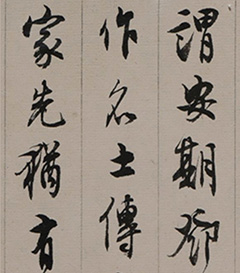 謂安期鄧
作名士傳
家先猶有